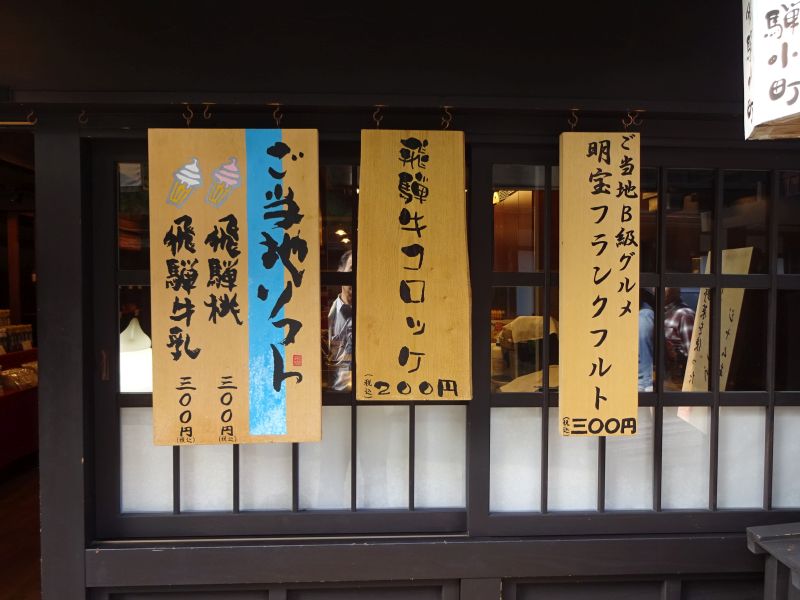 ご当地ソフト
飛騨桃
三〇〇円
(税込)
飛騨牛乳
三〇〇円
(税込)
飛騨牛コロッケ
(税込)
200円
ご当地B級グルメ
明宝フランクフルト
(税込)
三〇〇円
騨小町